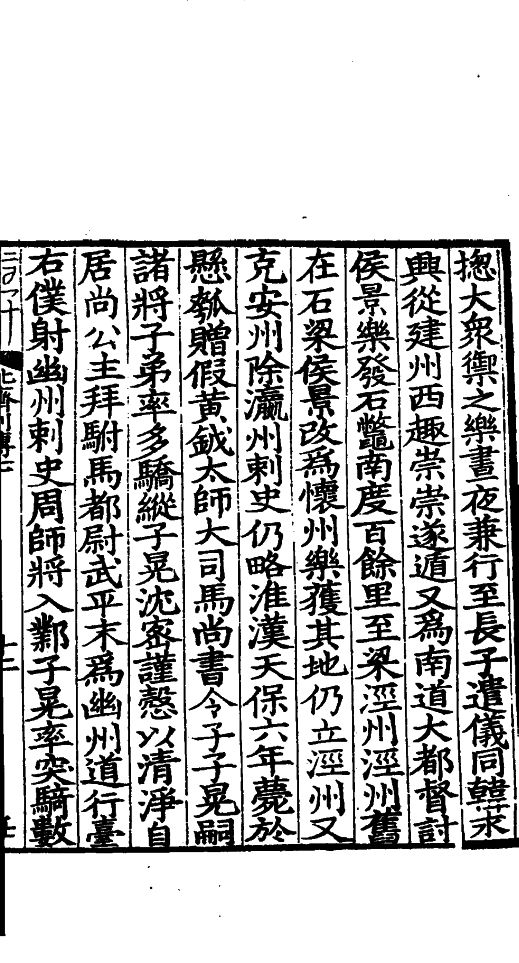 揔大衆禦之樂晝夜兼行至長子遣儀同韓永
興從建州西趣崇崇遂遁又爲南道大都督討
侯景樂發石鼈南度百餘里至梁涇州涇州舊
在石梁侯景改爲懷州樂獲其地仍立涇州又
克安州除瀛州刺史仍略淮漢天保六年薨於
懸瓠贈假黃鉞太師大司馬尚書令子子晃嗣
諸將子弟率多驕縱子晃沈密謹愨以清淨自
居尚公主拜駙馬都尉武平末爲幽州道行臺
右僕射幽州刺史周師將入鄴子晃率突騎數